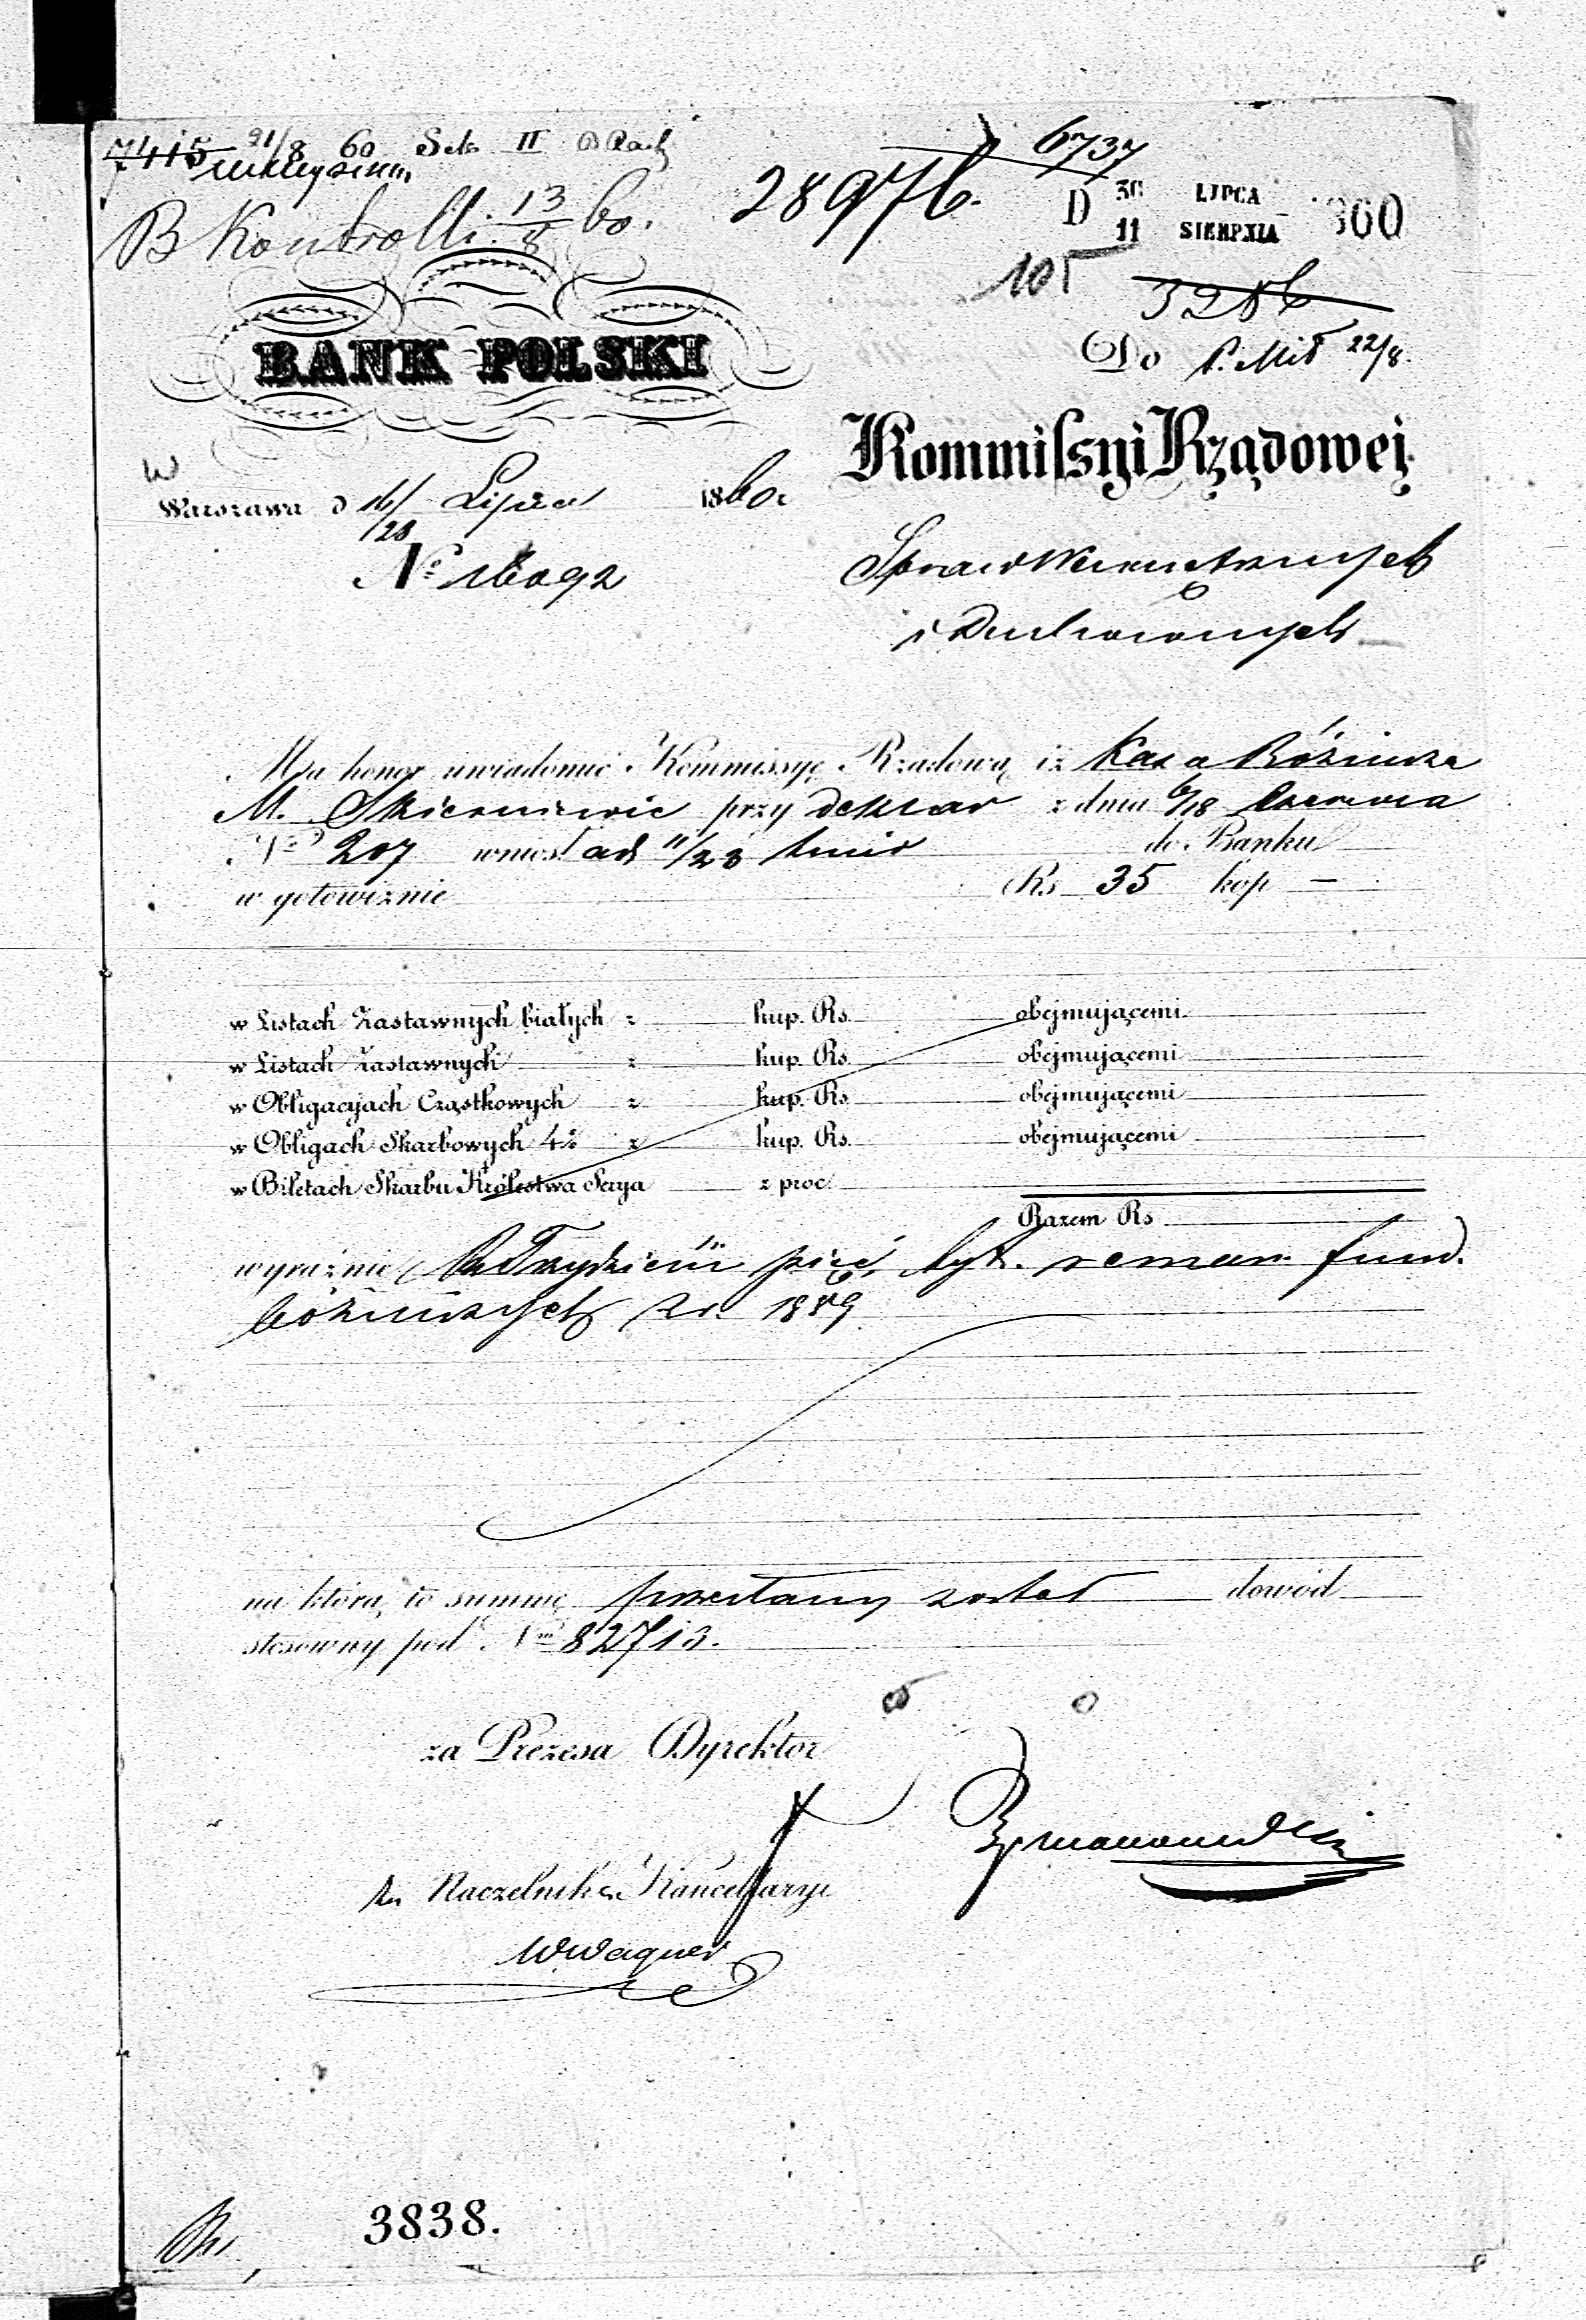 7415 21/8 60 Sek II
B Kontrolli 13/8 60.
28976.
6737
D 30/11 LIPCA/SIERPNIA 860
105
3286
BANK POLSKI
Do 22/8
Kommissyi Rządowej
Warszawa d 16/28 Lipca 1860 r
Spraw Wewnętrznych
No 16092
i Duchownych
Ma honor uwiadomić Kommissyę Rządową iż Kasa Bóżnicza
M. Skierniewic przy deklar z dnia 6/18 Czerwca
No 207 wniosł ad 11/23 do Banku
w gotowiznie Rs 35 kop —
w Listach Zastawnych białych z kup. Rs. obejmującemi
w Listach Zastawnych z kup. Rs. obejmującemi
w Obligacyjach Cząstkowych z kup. Rs. obejmującemi
w Obligach Skarbowych 4% z kup. Rs. obejmującemi
w Biletach Skarbu Królestwa Serya z proc.
Razem Rs
wyraźnie Rs Trzydzieści pięć, tyt. reman. fund.
bóżniczych za r. 1859
na którą to summę przesłany został dowód
stosowny pod Nm 82713.
za Prezesa Dyrektor
za Naczelnika Kancellaryi
W Wagner
3838.